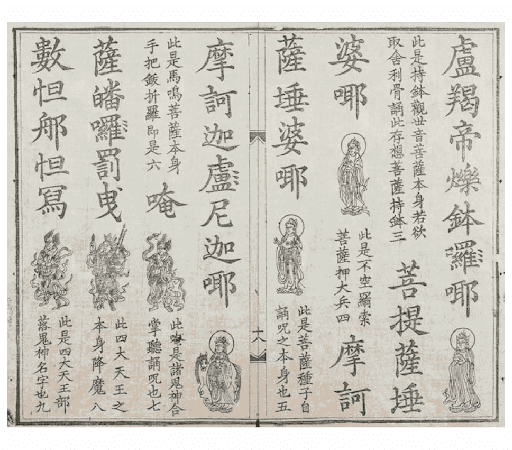 盧羯帝爍鉢囉㖿
此是持鉢觀世音菩薩本身若欲
取舍利骨誦此存想菩薩持鉢三
菩提薩埵
婆㖿
此是不空羂索
菩薩押大兵四
摩訶
薩埵婆㖿
此是菩薩種子自
誦呪之本身也五
十八
摩訶迦盧尼迦㖿
此是馬鳴菩薩本身
手把鈸折羅即是六
唵
此唵是諸鬼神合
掌聽誦呪也七
薩皤囉罰曳
此四大天王之
本身降魔八
數怛郍怛寫
此是四大天王部
落鬼神名字也九